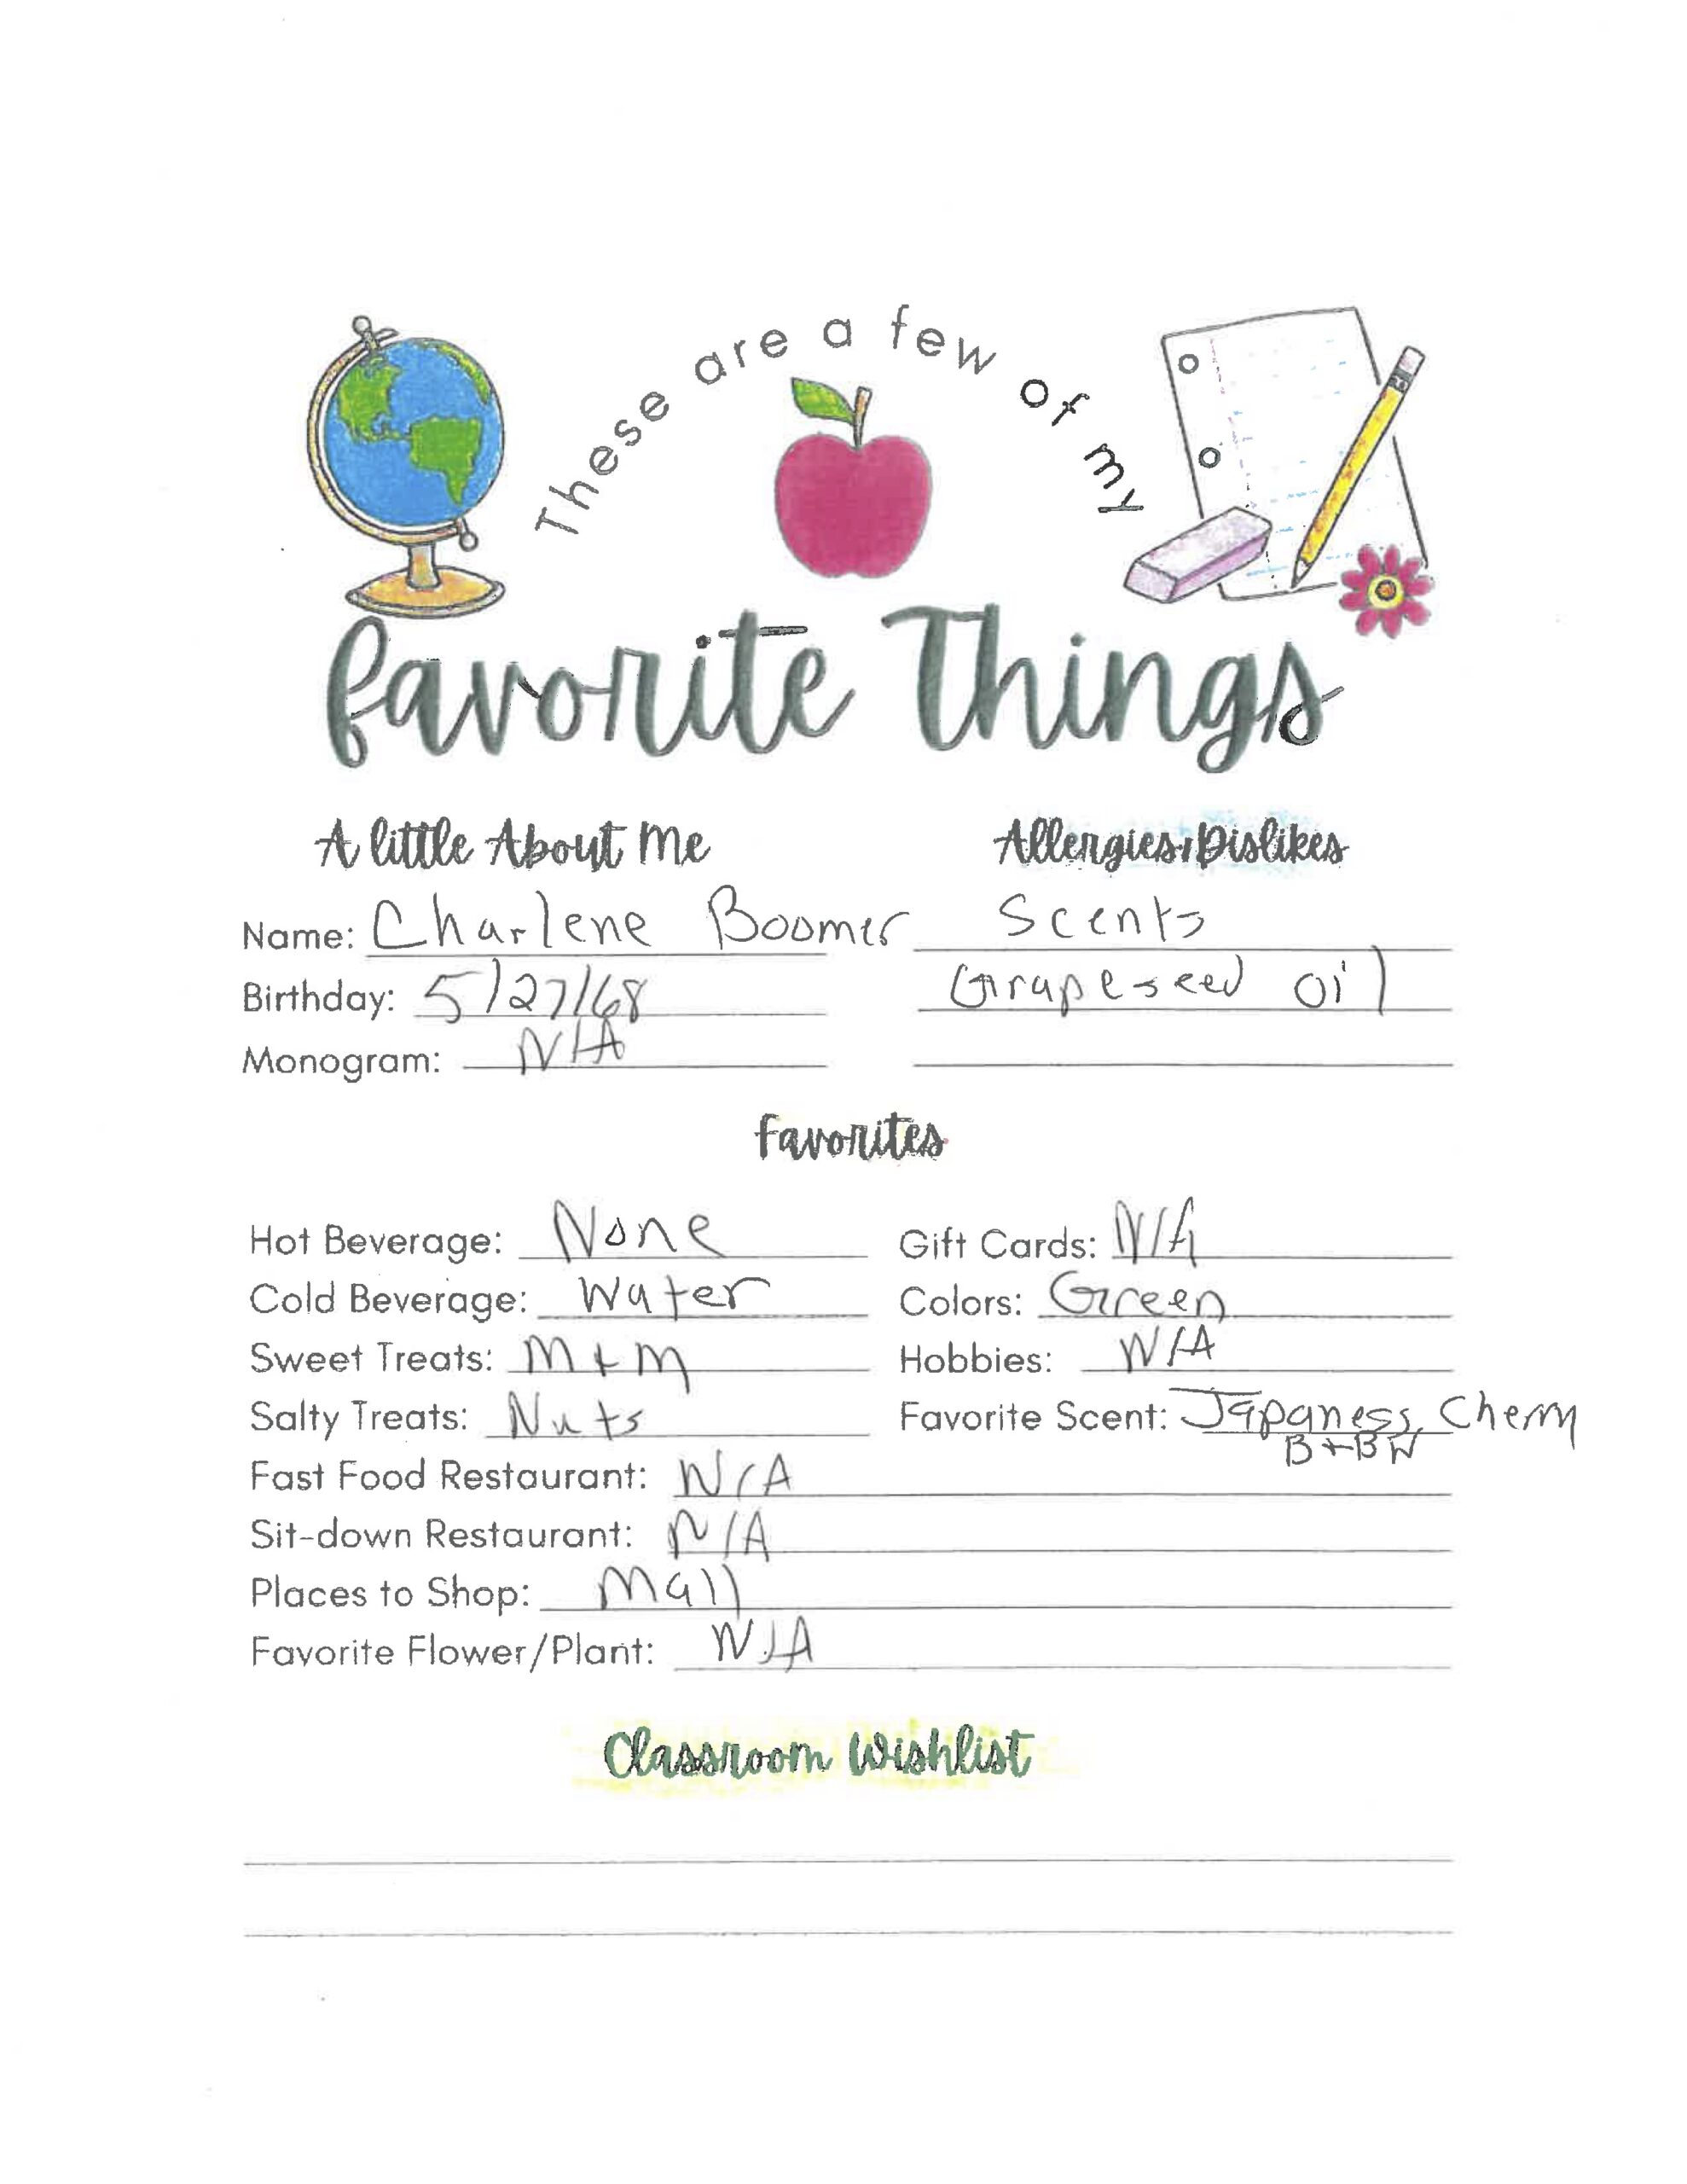 These are a few of my
favorite Things
A little About Me
Allergies/Dislikes
Name: Charlene Boomer
Scents
Birthday: 5/27/68
Grapeseed oil
Monogram: N/A
favorites
Hot Beverage: None
Gift Cards: N/A
Cold Beverage: Water
Colors: Green
Sweet Treats: M+M
Hobbies: N/A
Salty Treats: Nuts
Favorite Scent: Japaness Cherry
B+BW
Fast Food Restaurant: N/A
Sit-down Restaurant: N/A
Places to Shop: Mall
Favorite Flower/Plant: N/A
Classroom Wishlist